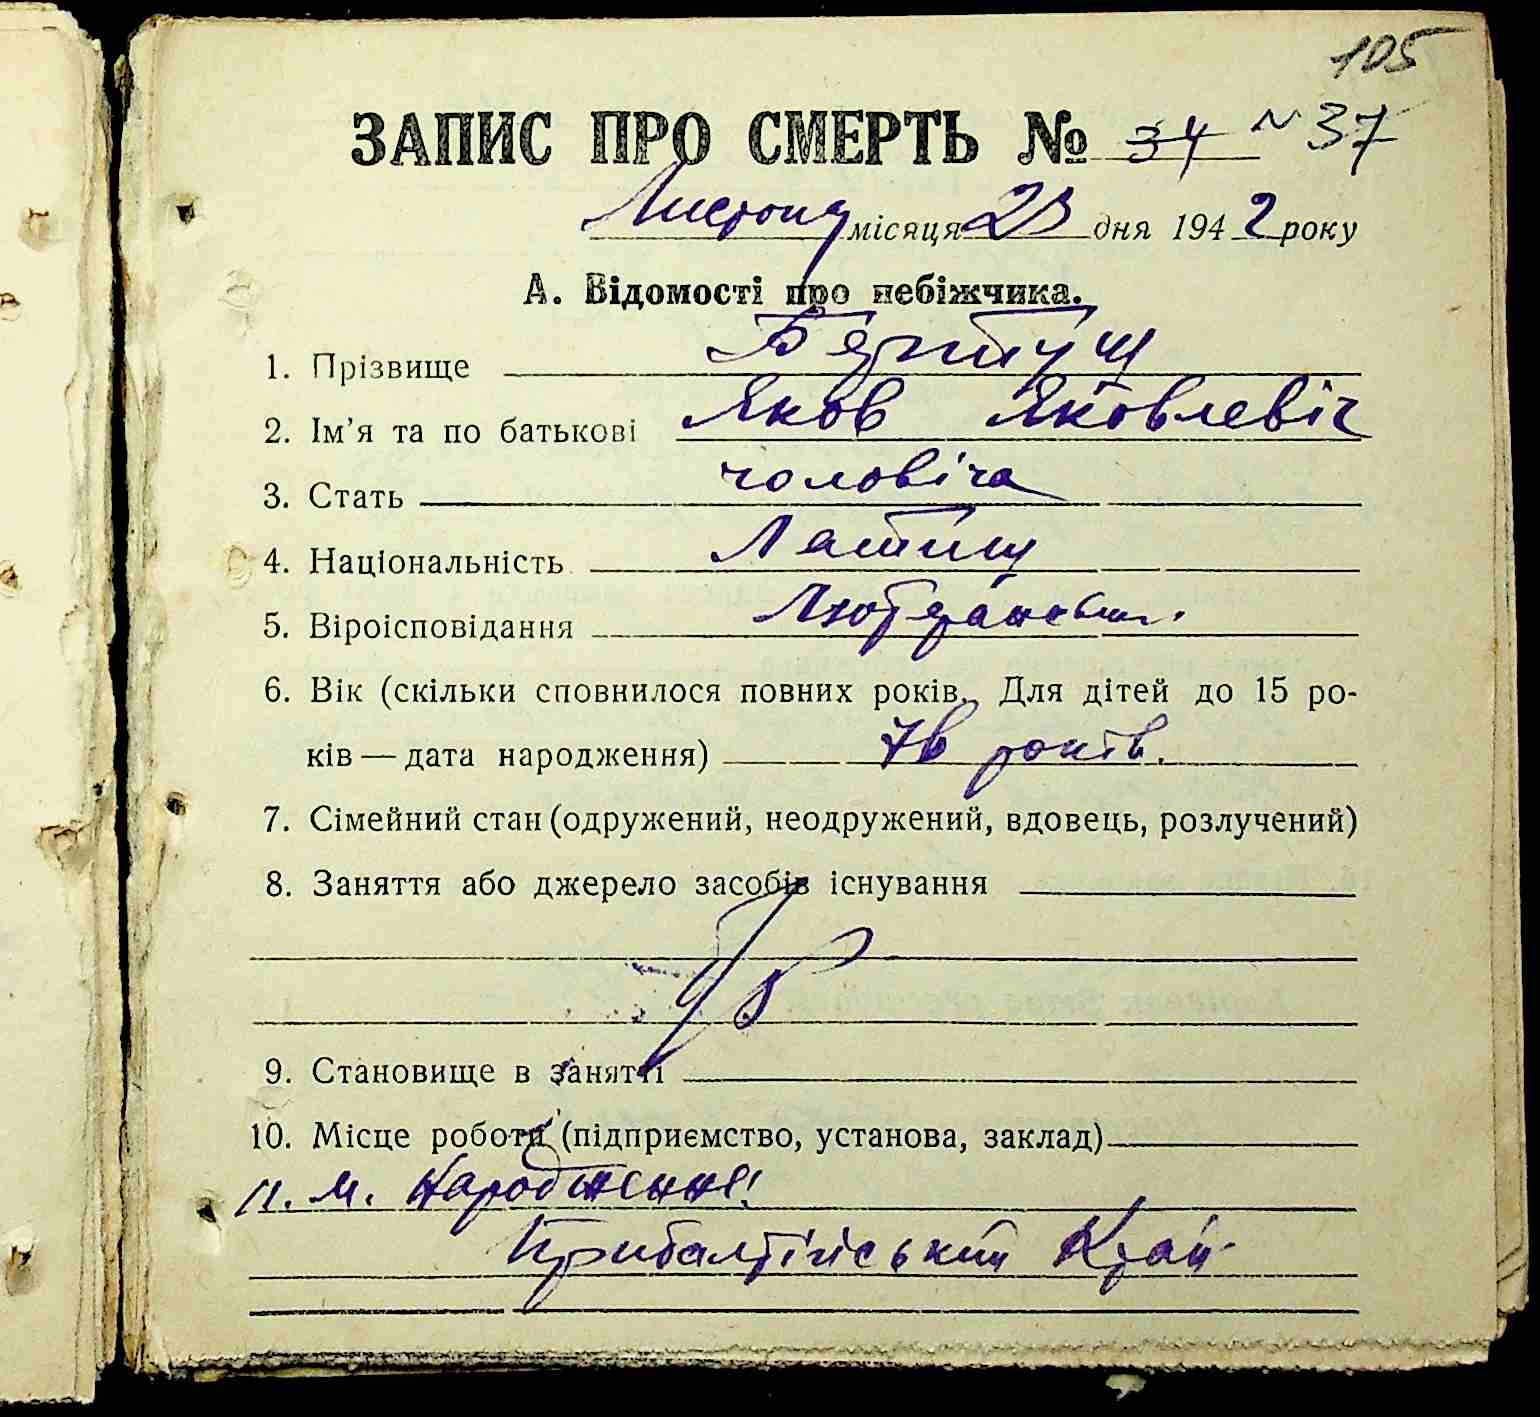 105
ЗАПИС ПРО СМЕРТЬ № 34 ~ 37
Листопад місяця 23 дня 1942 року
А. Відомості про небіжчика.
1. Прізвище
2. Ім'я та по батькові Яков Яковлевіч
3. Стать чоловіча
4. Національність Латиш
5. Віроісповідання
6. Вік (скільки сповнилося повних років. Для дітей до 15 ро-
ків — дата народження) років.
7. Сімейний стан (одружений, неодружений, вдовець, розлучений)
8. Заняття або джерело засобів існування
9. Становище в занятті
10. Місце роботи (підприємство, установа, заклад)
11. М. Народження:
Прибалтійський Край